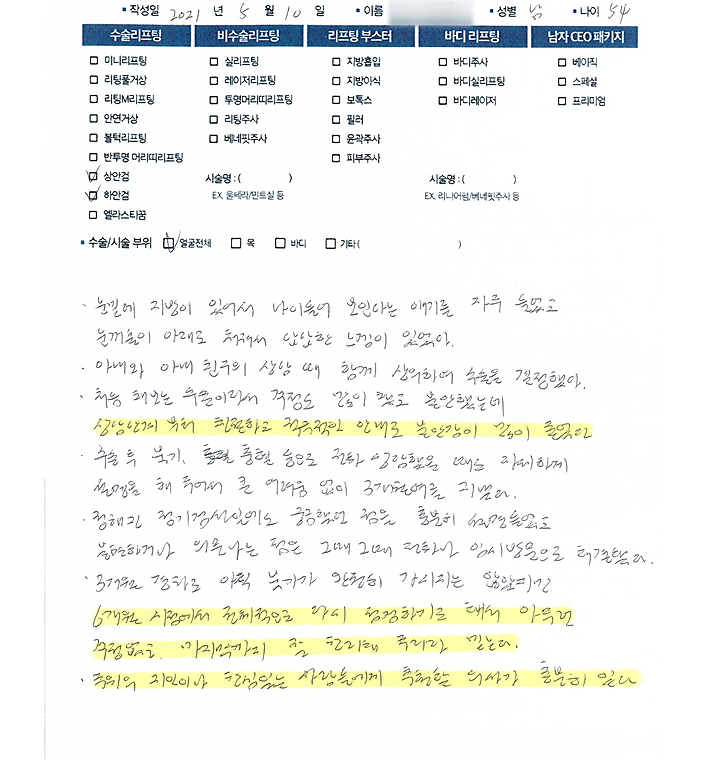 ▪ 작성일 2021 년 5 월 10 일 ▪ 이름 ▪ 성별 남 ▪ 나이 54
수술리프팅 비수술리프팅 리프팅 부스터 바디 리프팅 남자 CEO 패키지
□ 미니리프팅 □ 실리프팅 □ 지방흡입 □ 바디주사 □ 베이직
□ 리팅풀거상 □ 레이저리프팅 □ 지방이식 □ 바디실리프팅 □ 스페셜
□ 리팅M리프팅 □ 투명머리띠리프팅 □ 보톡스 □ 바디레이저 □ 프리미엄
□ 안면거상 □ 리팅주사 □ 필러
□ 볼턱리프팅 □ 베네핏주사 □ 윤곽주사
□ 반투명 머리띠리프팅 □ 피부주사
☑ 상안검 시술명 : ( ) 시술명 : ( )
☑ 하안검 EX. 울쎄라/민트실 등 EX. 리니어펌/베네핏주사 등
□ 엘라스티꿈
▪ 수술/시술 부위 ☑ 얼굴전체 □ 목 □ 바디 □ 기타 ( )
· 눈밑에 지방이 있어서 나이들어 보인다는 얘기를 자주 들었고
눈꺼풀이 아래로 쳐져서 답답한 느낌이 있었다.
· 아내와 아내 친구의 상담 때 함께 상의하여 수술을 결정했다.
· 처음 해보는 수술이라서 걱정도 많이 했고 불안했는데
상담단계부터 친절하고 적극적인 안내로 불안감이 많이 줄었다
· 수술 후 붓기, 통혈 등으로 전화 상담했을 때도 자세하게
설명을 해 주어서 큰 어려움 없이 3개월여를 지냈다.
· 정해진 정기검진일에도 궁금했던 점을 충분히 설명들었고
불편하거나 의문나는 점은 그때그때 전화나 임시방문으로 해결했다.
· 3개월 경과로 아직 붓기가 완전히 가시지는 않았지만
6개월 시점에서 전체적으로 다시 점검하기로 해서 아무런
걱정없고. 마지막까지 잘 관리해 주리라 믿는다.
· 주위의 지인이나 관심있는 사람들에게 추천할 의사가 충분히 있다